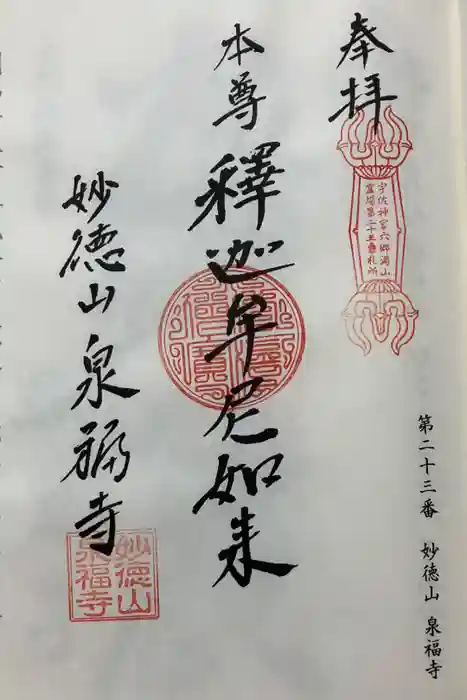 奉拝
宇佐神宮六郷満山
霊場第二十五番札所
本尊
釋迦牟尼如来
妙徳山
泉福寺
妙徳山
泉福寺
第二十三番 妙徳山 泉福寺